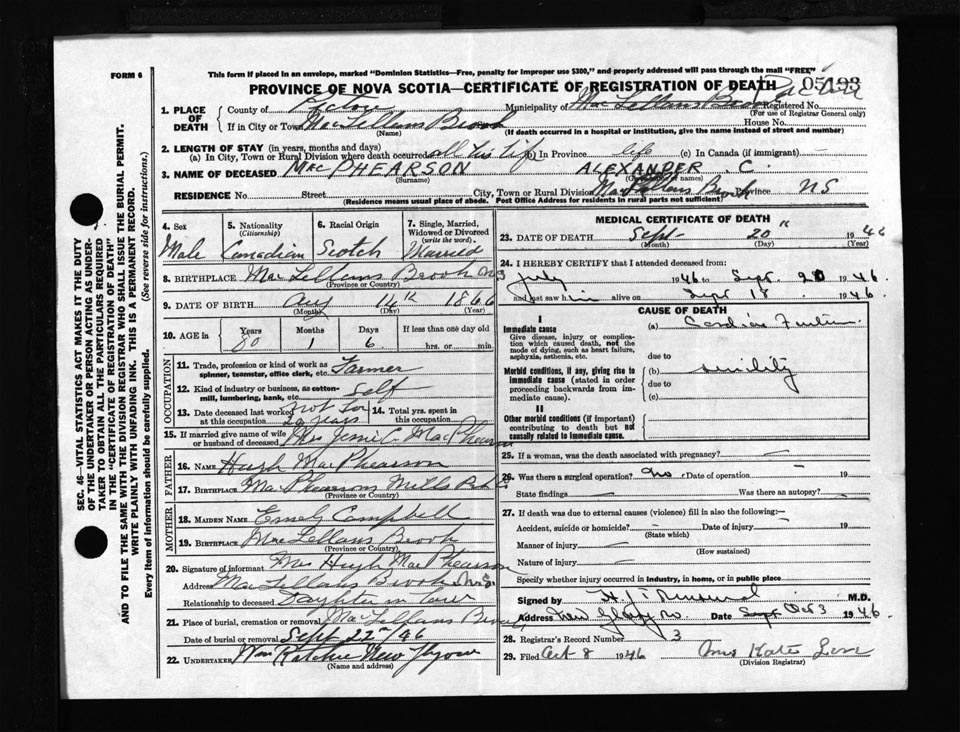 FORM 6
This form if placed in an envelope, marked "Dominion Statistics—Free, penalty for improper use $300," and properly addressed will pass through the mail "FREE"
PROVINCE OF NOVA SCOTIA—CERTIFICATE OF REGISTRATION OF DEATH
1. PLACE OF DEATH County of Pictou Municipality of MacLellans Brook Registered No.
(For use of Registrar General only)
If in City or Town MacLellans Brook House No.
(Name) (If death occurred in a hospital or institution, give the name instead of street and number)
2. LENGTH OF STAY (in years, months and days)
(a) In City, Town or Rural Division where death occurred all his life (b) In Province life (c) In Canada (if immigrant) —
3. NAME OF DECEASED MACPHEARSON ALEXANDER C
(Surname) (Given names)
RESIDENCE No. Street City, Town or Rural Division MacLellans Brook Province NS
(Residence means usual place of abode. Post Office Address for residents in rural parts not sufficient)
SEC. 46—VITAL STATISTICS ACT MAKES IT THE DUTY
OF THE UNDERTAKER OR PERSON ACTING AS UNDER-
TAKER TO OBTAIN ALL THE PARTICULARS REQUIRED
IN THE "CERTIFICATE OF REGISTRATION OF DEATH"
AND TO FILE THE SAME WITH THE DIVISION REGISTRAR WHO SHALL ISSUE THE BURIAL PERMIT.
WRITE PLAINLY WITH UNFADING INK. THIS IS A PERMANENT RECORD.
Every item of information should be carefully supplied. (See reverse side for instructions.)
4. Sex 5. Nationality (Citizenship) 6. Racial Origin 7. Single, Married, Widowed or Divorced (write the word)
Male Canadian Scotch Married
8. BIRTHPLACE MacLellans Brook NS
(Province or Country)
9. DATE OF BIRTH Aug 14th 1866
(Month) (Day) (Year)
10. AGE in Years Months Days If less than one day old
80 1 6 hrs. or min.
OCCUPATION
11. Trade, profession or kind of work as spinner, teamster, office clerk, etc. Farmer
12. Kind of industry or business, as cotton-mill, lumbering, bank, etc. Self
13. Date deceased last worked at this occupation not for 20 years 14. Total yrs. spent in this occupation
15. If married give name of wife or husband of deceased Mrs Jessie C. MacPhearson
FATHER
16. NAME Hugh MacPhearson
17. BIRTHPLACE MacPhearsons Mills
(Province or Country)
MOTHER
18. MAIDEN NAME Campbell
19. BIRTHPLACE MacLellans Brook
(Province or Country)
20. Signature of informant Mrs Hugh MacPhearson
Address MacLellans Brook N.S.
Relationship to deceased Daughter in Law
21. Place of burial, cremation or removal MacLellans Brook
Date of burial or removal Sept 22nd/46
22. UNDERTAKER Wm Ritchie New Glasgow
(Name and address)
MEDICAL CERTIFICATE OF DEATH
23. DATE OF DEATH Sept 20th 1946
(Month) (Day) (Year)
24. I HEREBY CERTIFY that I attended deceased from:
July 1946 to Sept. 20 1946
and last saw him alive on Sept 18 1946
CAUSE OF DEATH
I
Immediate cause (a) Cardiac Failure
Give disease, injury or complica-
tion which caused death, not the
mode of dying, such as heart failure,
asphyxia, asthenia, etc. due to
Morbid conditions, if any, giving rise to (b) senility
immediate cause (stated in order due to
proceeding backwards from im-
mediate cause). (c)
II
Other morbid conditions (if important)
contributing to death but not
causally related to immediate cause.
25. If a woman, was the death associated with pregnancy? —
26. Was there a surgical operation? no Date of operation — 19
State findings — Was there an autopsy? —
27. If death was due to external causes (violence) fill in also the following:—
Accident, suicide or homicide? — Date of injury — 19
(State which)
Manner of injury —
(How sustained)
Nature of injury —
Specify whether injury occurred in industry, in home, or in public place
Signed by M.D.
Address New Glasgow Date Sept Oct 3 1946
28. Registrar's Record Number 3
29. Filed Oct 8 1946 Mrs Kate
(Division Registrar)